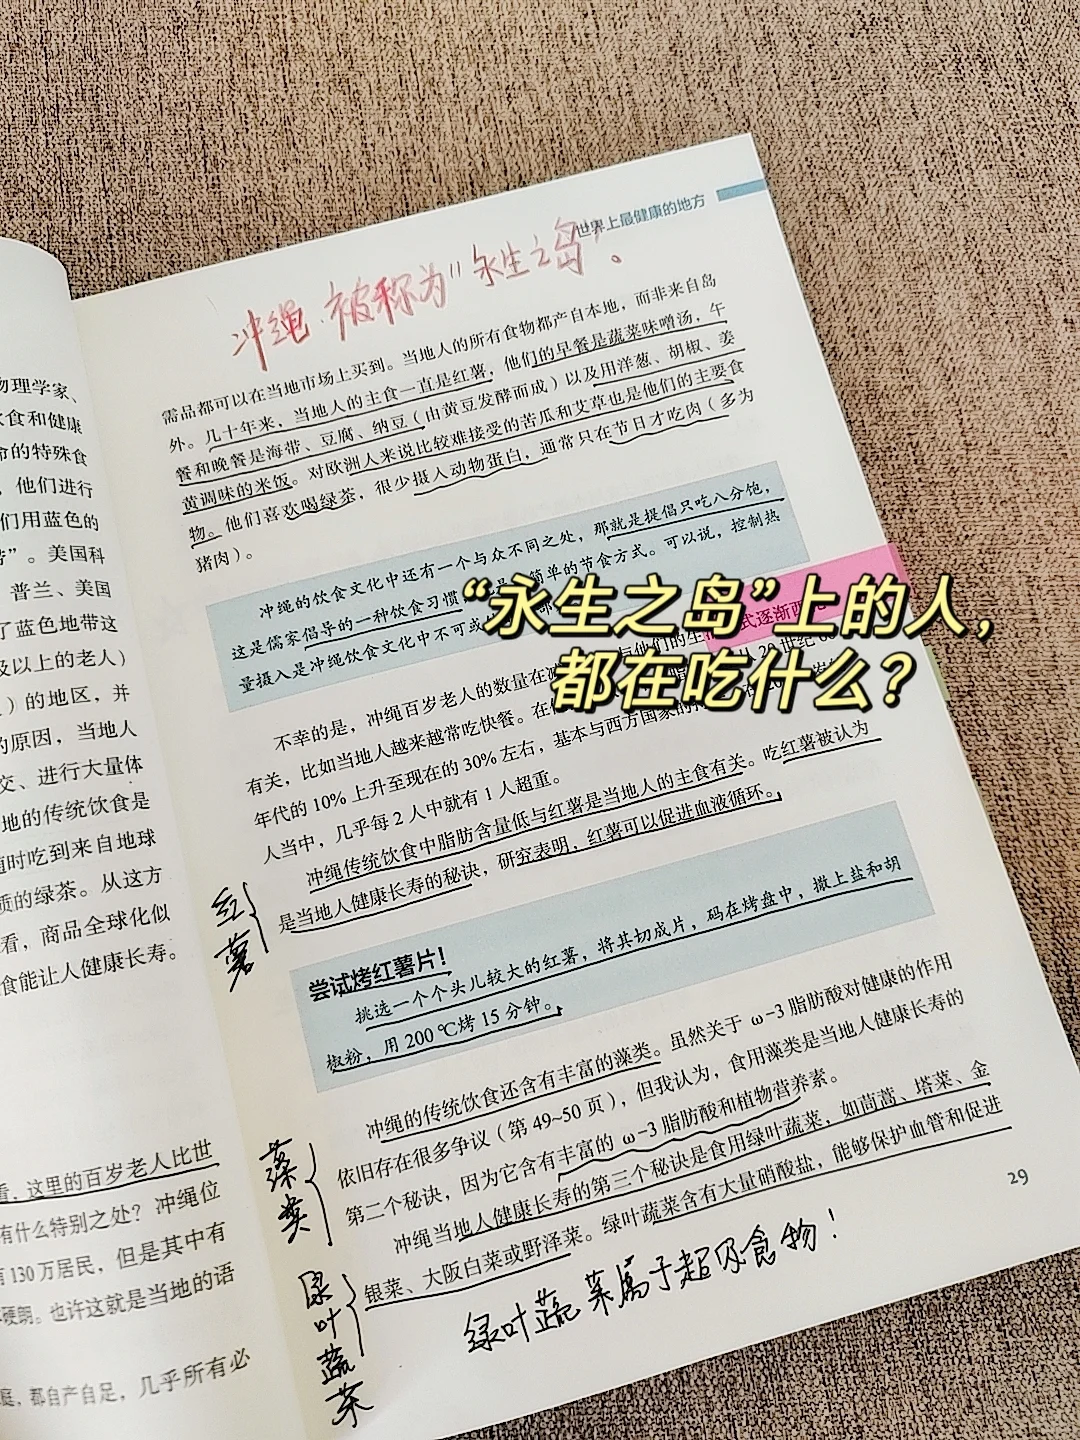 物理学家、
饮食和健康
命的特殊食
，他们进行
们用蓝色的
带”。美国科
普兰、美国
了蓝色地带这
及以上的老人）
）的地区，并
的原因，当地人
交、进行大量体
地的传统饮食是
随时吃到来自地球
质的绿茶。从这方
看，商品全球化似
食能让人健康长寿。
看，这里的百岁老人比世
有什么特别之处？冲绳位
有130万居民，但是其中有
硬朗。也许这就是当地的语
庭，都自产自足，几乎所有必
世界上最健康的地方
冲绳 被称为“永生之岛”。
需品都可以在当地市场上买到。当地人的所有食物都产自本地，而非来自岛
外。几十年来，当地人的主食一直是红薯，他们的早餐是蔬菜味噌汤，午
餐和晚餐是海带、豆腐、纳豆（由黄豆发酵而成）以及用洋葱、胡椒、姜
黄调味的米饭。对欧洲人来说比较难接受的苦瓜和艾草也是他们的主要食
物。他们喜欢喝绿茶，很少摄入动物蛋白，通常只在节日才吃肉（多为
猪肉）。
冲绳的饮食文化中还有一个与众不同之处，那就是提倡只吃八分饱，
这是儒家倡导的一种饮食习惯，简单的节食方式。可以说，控制热
量摄入是冲绳饮食文化中不可或
“永生之岛”上的人，
都在吃什么？
不幸的是，冲绳百岁老人的数量在减与他们的生式逐渐西
有关，比如当地人越来越常吃快餐。在
年代的10%上升至现在的30%左右，基本与西方国家的
人当中，几乎每2人中就有1人超重。
冲绳传统饮食中脂肪含量低与红薯是当地人的主食有关。吃红薯被认为
是当地人健康长寿的秘诀，研究表明，红薯可以促进血液循环。
红薯
尝试烤红薯片！
挑选一个个头儿较大的红薯，将其切成片，码在烤盘中，撒上盐和胡
椒粉，用200℃烤15分钟。
冲绳的传统饮食还含有丰富的藻类。虽然关于ω-3脂肪酸对健康的作用
依旧存在很多争议（第49~50页），但我认为，食用藻类是当地人健康长寿的
第二个秘诀，因为它含有丰富的ω-3脂肪酸和植物营养素。
藻类
冲绳当地人健康长寿的第三个秘诀是食用绿叶蔬菜，如茼蒿、塔菜、金
银菜、大阪白菜或野泽菜。绿叶蔬菜含有大量硝酸盐，能够保护血管和促进
绿叶蔬菜
绿叶蔬菜属于超级食物！
29